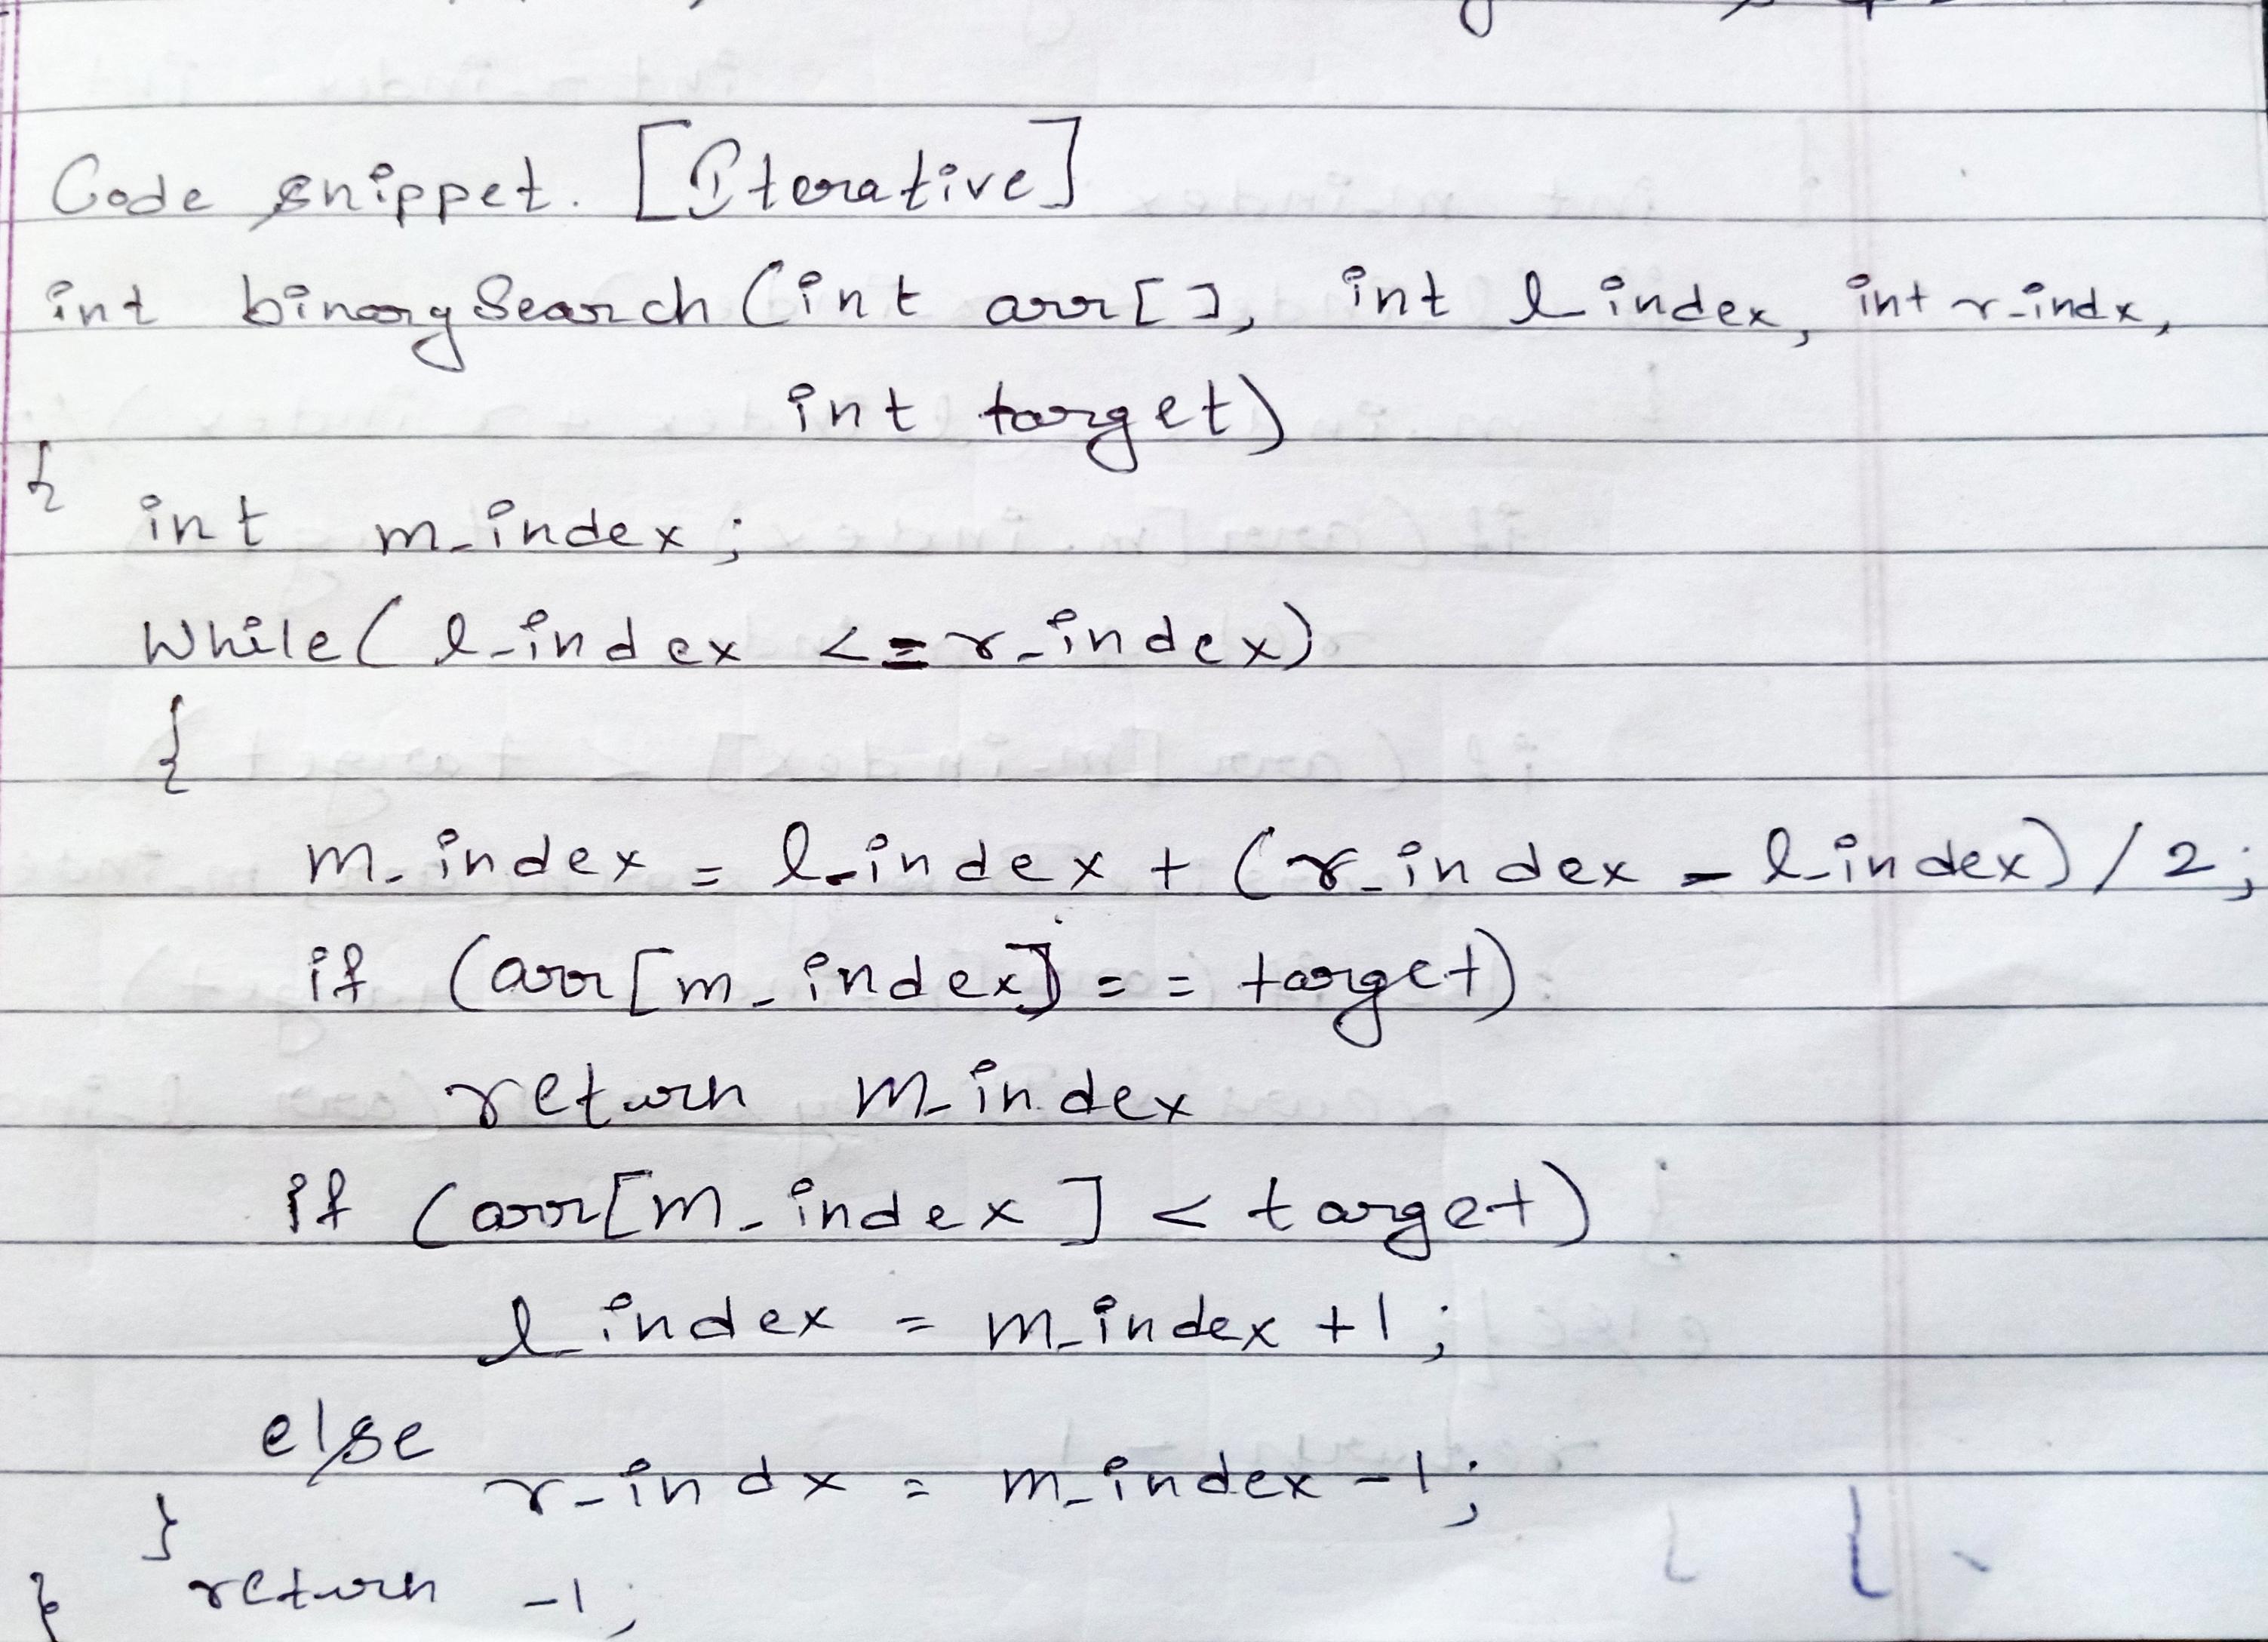 Code snippet. [Iterative]
int binarySearch(int arr[], int l index, int r_indx,
int target)
{
int m_index;
While( l_index <= r_index)
{
m_index = l_index + (r_index - l_index) / 2;
if (arr[m_index] == target)
return m_index
if (arr[m_index] < target)
l_index = m_index +1;
else
r_indx = m_index -1;
}
return -1;
}